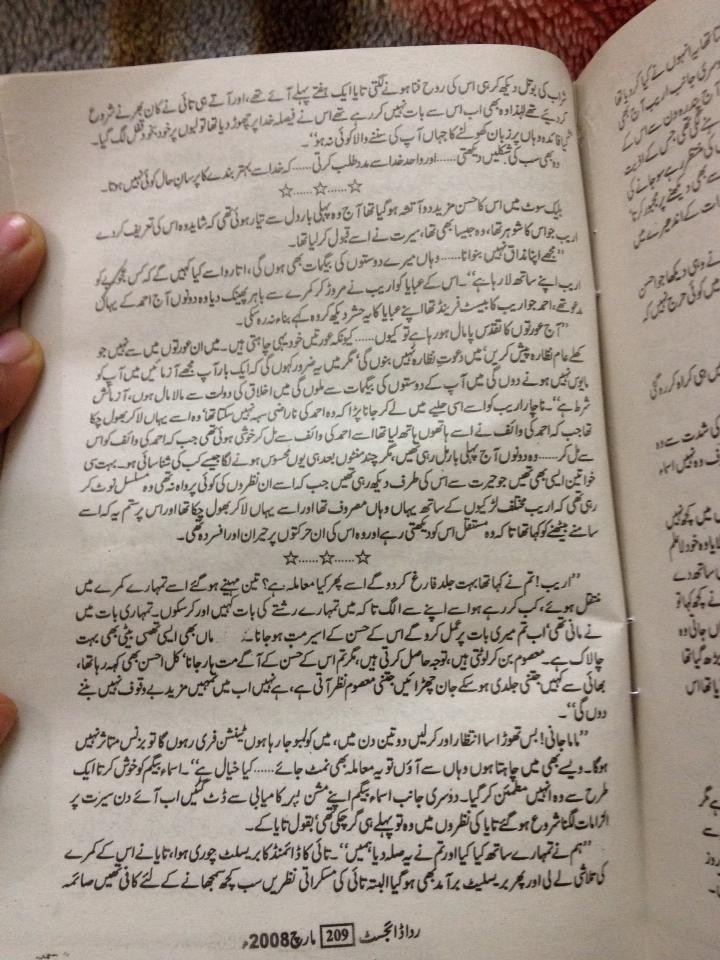 شراب کی بوتل دیکھ کر ہی اس کی روح فنا ہونے لگتی تایا ایک ہفتے پہلے آئے تھے، اور آتے ہی تائی نے کان بھرنے شروع
کر دیئے تھے لہٰذا وہ بھی اب اس سے بات نہیں کر رہے تھے اس نے فیصلہ خدا پر چھوڑ دیا تھا تو لبوں پر خود بخود قفل لگ گیا۔
"کیا فائدہ وہاں پر زبان کھولنے کا جہاں آپ کی سننے والا کوئی نہ ہو"۔
وہ بھی سب کی شکلیں دیکھتی ...... اور واحد خدا سے مدد طلب کرتی ...... کہ خدا سے بہتر بندے کا پرسان حال کوئی نہیں ہوتا۔
☆......☆......☆
بلیک سوٹ میں اس کا حسن مزید دو آتشہ ہو گیا تھا آج وہ پہلی بار دل سے تیار ہوئی تھی کہ شاید وہ اس کی تعریف کر دے
اریب جو اس کا شوہر تھا، وہ جیسا بھی تھا، سیرت نے اسے قبول کر لیا تھا۔
"مجھے اپنا مذاق نہیں بنوانا ...... وہاں میرے دوستوں کی بیگمات بھی ہوں گی، اتارو اسے کیا کہیں گے کہ کس کو
اریب اپنے ساتھ لا رہا ہے"۔ اس کے عبایا کو اریب نے مروڑ کر کمرے سے باہر پھینک دیا وہ دونوں آج احمد کے یہاں
مدعو تھے، احمد جو اریب کا بیسٹ فرینڈ تھا اپنے عبایا کا یہ حشر دیکھ کر وہ کہے بناء نہ رہ سکی۔
"آج عورتوں کا تقدس پامال ہو رہا ہے تو کیوں ...... کیونکہ عورتیں خود یہی چاہتی ہیں۔ میں ان عورتوں میں سے نہیں جو
کھلے عام نظارہ پیش کریں میں دعوتِ نظارہ نہیں بنوں گی' مگر میں یہ ضرور کہوں گی کہ ایک بار آپ مجھے آزمائیں میں آپ کو
مایوس نہیں ہونے دوں گی میں آپ کے دوستوں کی بیگمات سے ملوں گی میں اخلاق کی دولت سے مالا مال ہوں، آزمائش
شرط ہے"۔ ناچار اریب کو اسے اسی حلیے میں لے کر جانا پڑا کہ وہ احمد کی ناراضی سہہ نہیں سکتا تھا' وہ اسے یہاں لا کر بھول چکا
تھا جب کہ احمد کی وائف نے اسے ہاتھوں ہاتھ لیا تھا اسے احمد کی وائف سے مل کر خوشی ہوئی تھی جب کہ احمد کی وائف کو اس
سے مل کر ...... وہ دونوں آج پہلی بار مل رہی تھیں، مگر چند منٹوں بعد ہی یوں محسوس ہونے لگا جیسے کب کی شناسائی ہو۔ بہت سی
خواتین ایسی بھی تھیں جو حیرت سے اس کی طرف دیکھ رہی تھیں جب کہ اسے ان نظروں کی کوئی پرواہ نہ تھی وہ مسلسل نوٹ کر
رہی تھی کہ اریب مختلف لڑکیوں کے ساتھ یہاں وہاں مصروف تھا اور اسے یہاں لا کر بھول چکا تھا اور اس پر ستم یہ کہ اسے
سامنے بیٹھنے کو کہا تھا تا کہ وہ مستقل اس کو دیکھتی رہے اور وہ اس کی ان حرکتوں پر حیران اور افسردہ تھی۔
☆......☆......☆
"اریب! تم نے کہا تھا بہت جلد فارغ کر دو گے اسے پھر کیا معاملہ ہے؟ تین مہینے ہو گئے اسے تمہارے کمرے میں
منتقل ہوئے، کب کر رہے ہو اسے اپنے سے الگ تا کہ میں تمہارے رشتے کی بات کہیں اور کر سکوں۔ تمہاری بات میں
نے مانی تھی' اب تم میری بات پر عمل کرو گے اس کے حسن کے اسیر مت ہو جانا۔ ماں بھی ایسی تھی بیٹی بھی بہت
چالاک ہے۔ معصوم بن کر لوٹتی ہیں، توجہ حاصل کرتی ہیں، مگر تم اس کے حسن کے آگے مت ہار جانا' کل احسن بھی کہہ رہا تھا،
بھائی سے کہیں جتنی جلدی ہو سکے جان چھڑائیں جتنی معصوم نظر آتی ہے، ہے نہیں اب میں تمہیں مزید بے وقوف نہیں بننے
دوں گی"۔
"ماما جانی! بس تھوڑا سا انتظار اور کر لیں دو تین دن میں، میں کولمبو جا رہا ہوں ٹینشن فری رہوں گا تو بزنس متاثر نہیں
ہوگا۔ ویسے بھی میں چاہتا ہوں وہاں سے آؤں تو یہ معاملہ بھی نمٹ جائے ...... کیا خیال ہے"۔ اسماء بیگم کو خوش کرتا ایک
طرح سے وہ انہیں مطمئن کر گیا۔ دوسری جانب اسماء بیگم اپنے مشن پر کامیابی سے ڈٹ گئیں اب آئے دن سیرت پر
الزامات لگنا شروع ہو گئے تایا کی نظروں میں وہ تو پہلے ہی گر چکی تھی' بقول تایا کے۔
"ہم نے تمہارے ساتھ کیا کیا اور تم نے یہ صلہ دیا ہمیں"۔ تائی کا ڈائمنڈ کا بریسلٹ چوری ہوا، تایا نے اس کے کمرے
کی تلاشی لے لی اور پھر بریسلیٹ برآمد بھی ہو گیا البتہ تائی کی مسکراتی نظریں سب کچھ سمجھانے کے لئے کافی تھیں صائمہ
ردا ڈائجسٹ 209 مارچ 2008ء